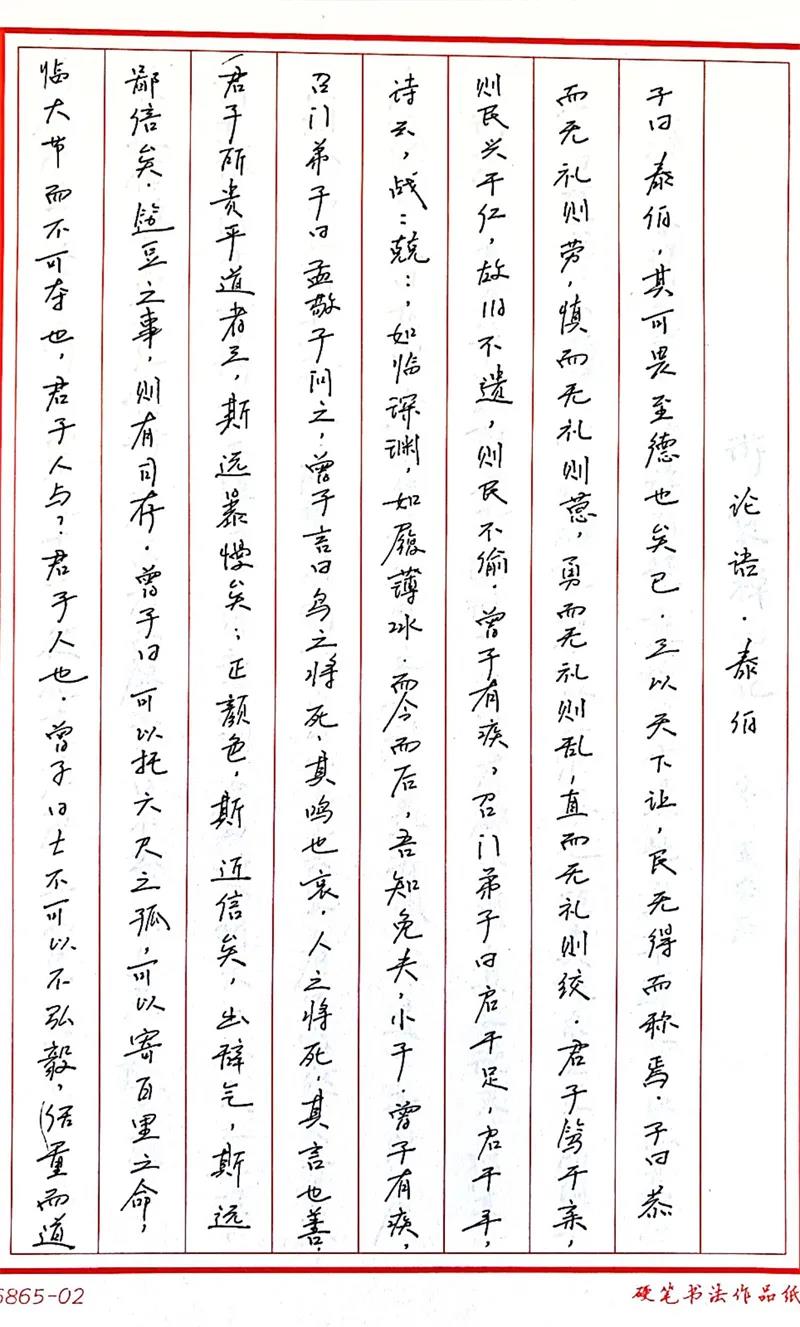 论语·泰伯
子曰，泰伯，其可畏至德也矣已．三以天下让，民无得而称焉．子曰恭
而无礼则劳，慎而无礼则葸，勇而无礼则乱，直而无礼则绞．君子笃于亲，
则民兴于仁，故旧不遗，则民不偷．曾子有疾，召门弟子曰启予足，启予手，
诗云，战：兢：，如临深渊，如履薄冰．而今而后，吾知免夫，小子．曾子有疾，
召门弟子曰孟敬子问之，曾子言曰鸟之将死，其鸣也哀．人之将死，其言也善．
君子所贵乎道者三，斯远暴慢矣；正颜色，斯近信矣，出辞气，斯远
鄙倍矣．笾豆之事，则有司存．曾子曰可以托六尺之孤，可以寄百里之命，
临大节而不可夺也，君子人与？君子人也．曾子曰士不可以不弘毅，任重而道
6865-02
硬笔书法作品纸